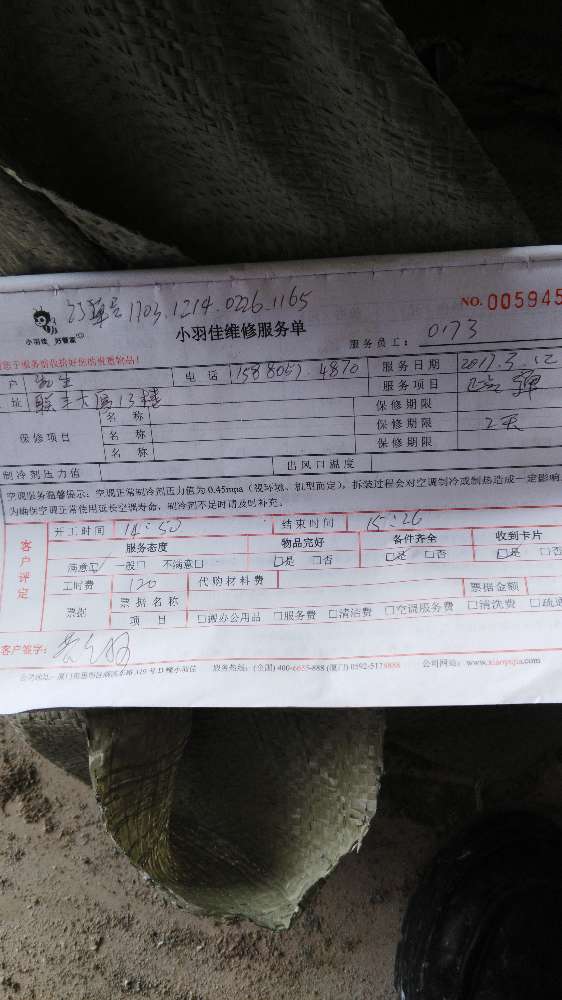 订单号 1703.1214.0226.1165
NO. 005945
小羽佳 好管家
小羽佳维修服务单
服务员工: 0173
户 先生 电 话 158805 4870 服务日期 2017.3.12
服务项目
址 联丰大厦13楼 保修期限
保修项目 名 称 保修期限
名 称 保修期限 2天
名 称
制冷剂压力值 出风口温度
空调服务温馨提示:空调正常制冷剂压力值为0.45mpa(视环境、机型而定),拆装过程会对空调制冷或制热造成一定影响
为确保空调正常使用延长空调寿命,制冷剂不足时请及时补充。
客户评定
开工时间 14:50 结束时间 15:26
服务态度 物品完好 备件齐全 收到卡片
满意☑ 一般□ 不满意□ □是 □否 □是 □否 □是 □否
工时费 120 代购材料费
票据 票据名称 票据金额
项 目 □搬办公用品 □服务费 □清洁费 □空调服务费 □清洗费 □疏通
客户签字:
服务热线:(全国) 400-6625-888 (厦门) 0592-5178888 公司网站:www.xiaoyujia.com